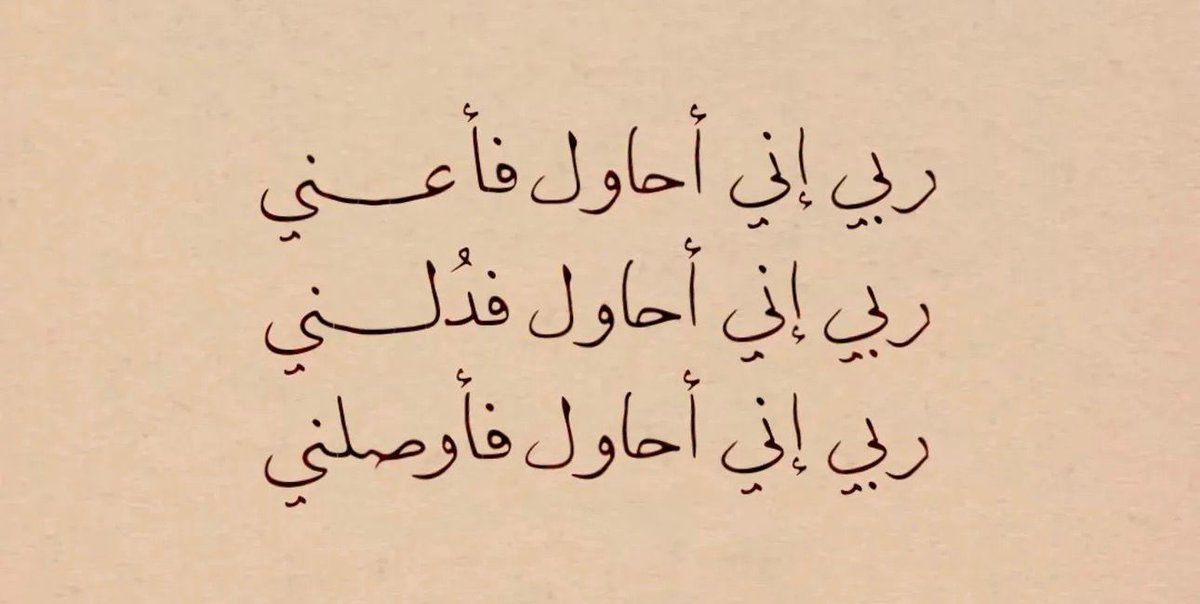 ربي إني أحاول فأعني
ربي إني أحاول فدُلني
ربي إني أحاول فأوصلني